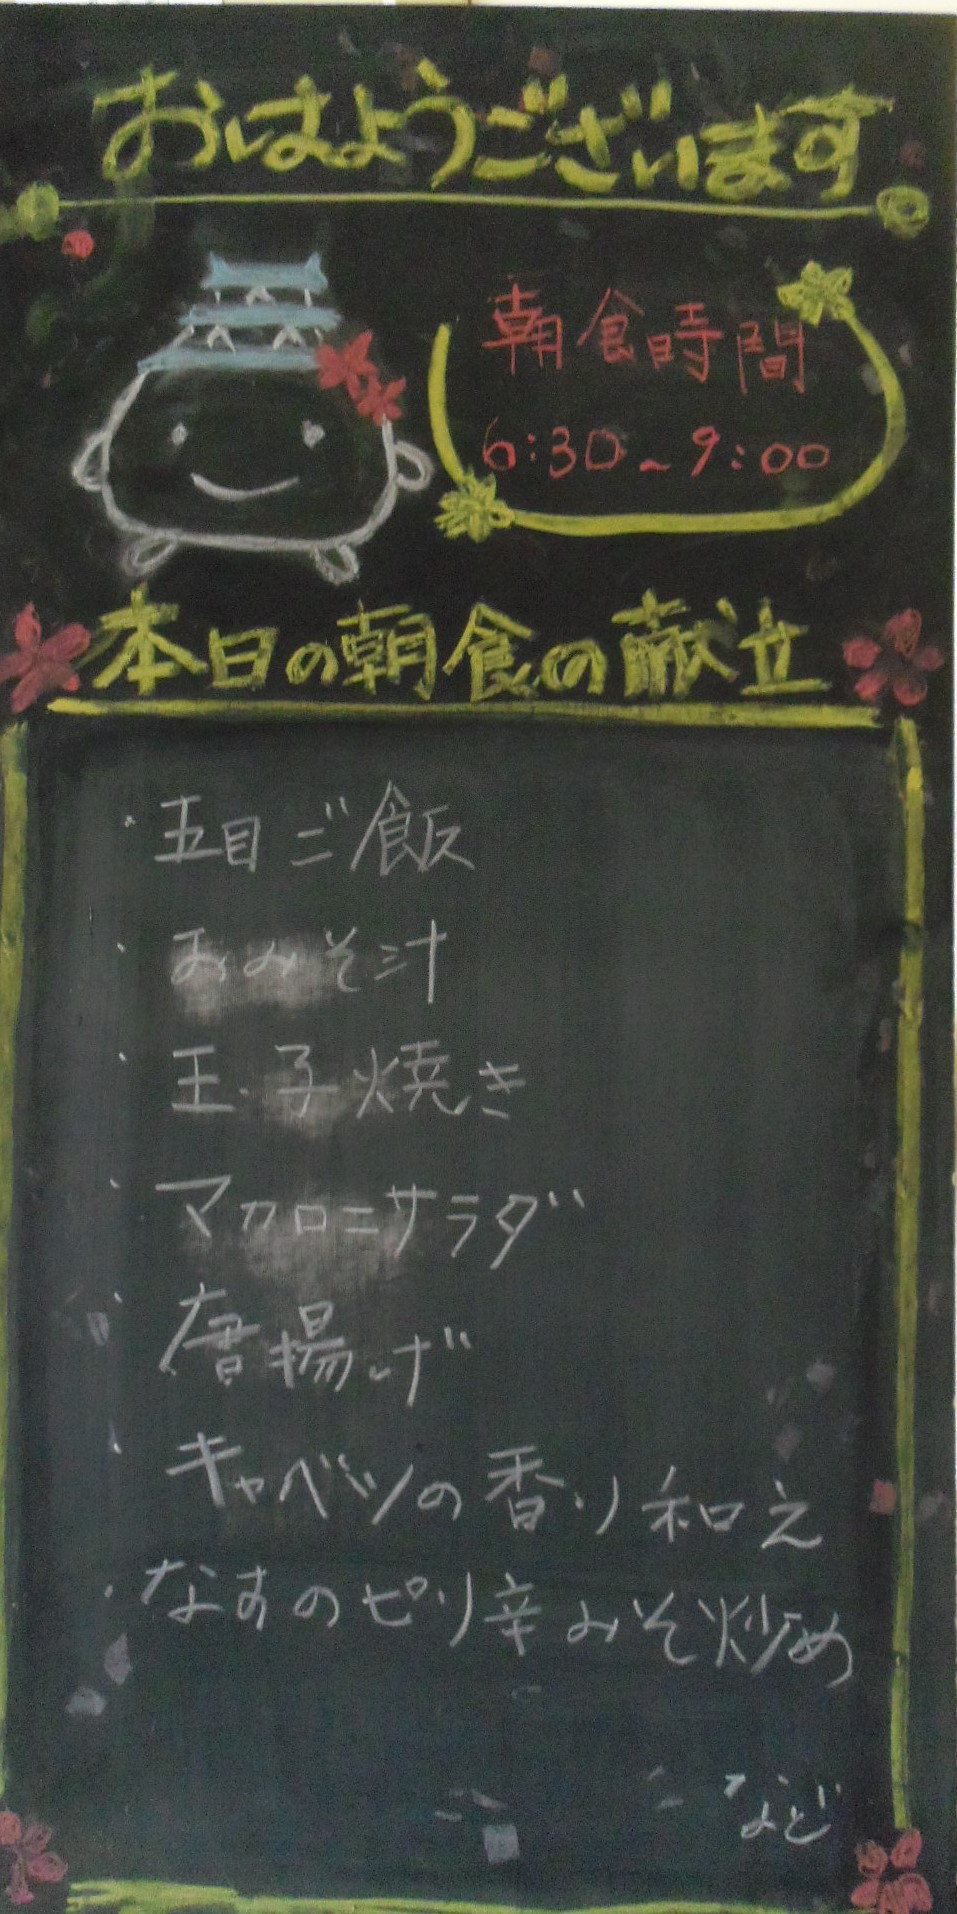 おはようございます
朝食時間
6:30~9:00
本日の朝食の献立
・五目ご飯
・おみそ汁
・玉子焼き
・マカロニサラダ
・唐揚げ
・キャベツの香り和え
・なすのピリ辛みそ炒め
など